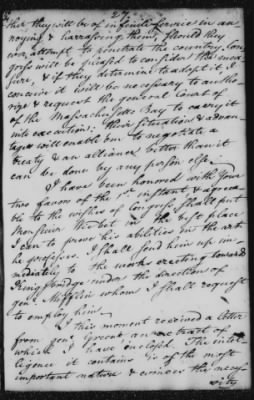 there they will be of infinite service in an
noying & harrassing them, should they
ever attempt to penetrate the country. Con
gress will be pleased to consider this mea
sure, & if they determine to adopt it, I
conceive it will be necessary to autho
rize & request the general Court of
of the Massachusetts Bay to carry it
into execution; their situation & advan
tages will enable them to negotiate a
treaty & an alliance better than it
can be done by any person else.
I have been honored with your
two favors of the 1st instant & agreea
ble to the wishes of Congress shall put
Monsieur Weibert in the best place
I can to prove his abilities in the art
he professes. I shall send him up im
mediately to the works erecting towards
Kings bridge under the direction of
gen. Mifflin whom I shall request
to employ him.
I this moment received a letter
from gen. Greene, an extract of
which I have enclosed. The intel
ligence it contains is of the most
important nature & evinces the neces
sity